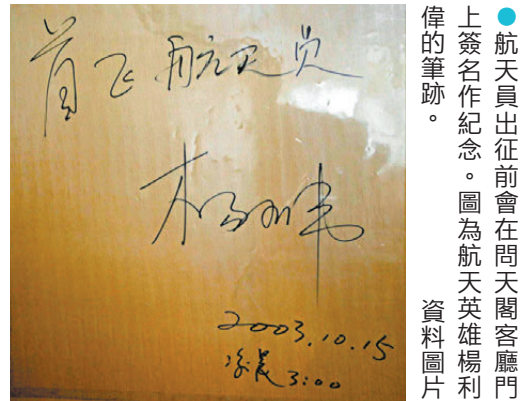 首飞航天员
杨利伟
2003.10.15
凌晨3:00
●航天員出征前會在問天閣客廳門
上簽名作紀念。圖為航天英雄楊利
偉的筆跡。 資料圖片